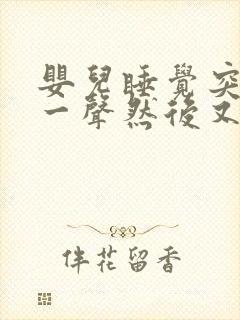 嬰兒睡覺突
一聲然後又
伴花留香